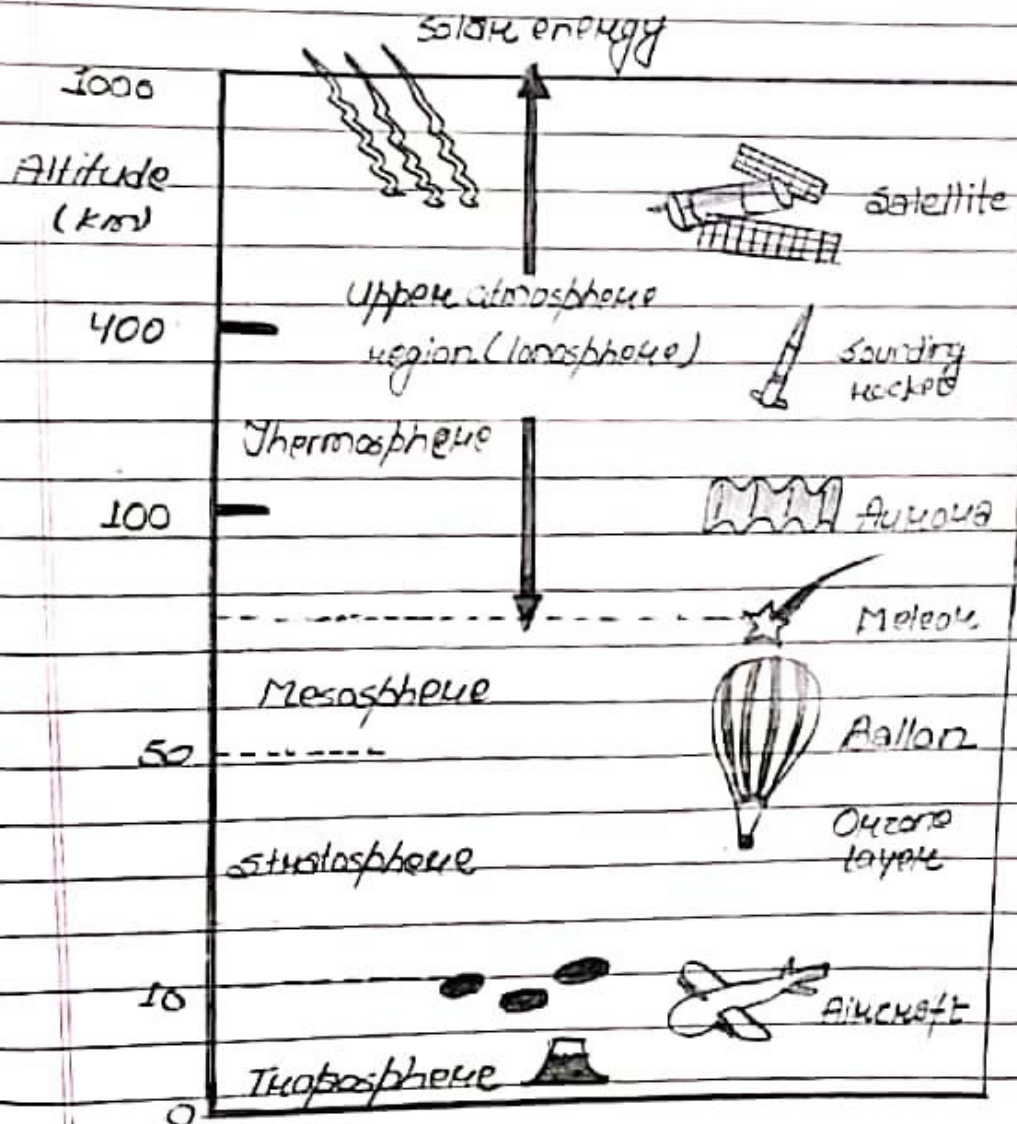 Solar energy
1000
Altitude
(km)
Satellite
Upper atmosphere
region (Ionosphere)
400
Sounding
rocket
Thermosphere
100
Aurora
Meteor
Mesosphere
50
Ballon
Ozone
layer
Stratosphere
10
Aircraft
Troposphere
0